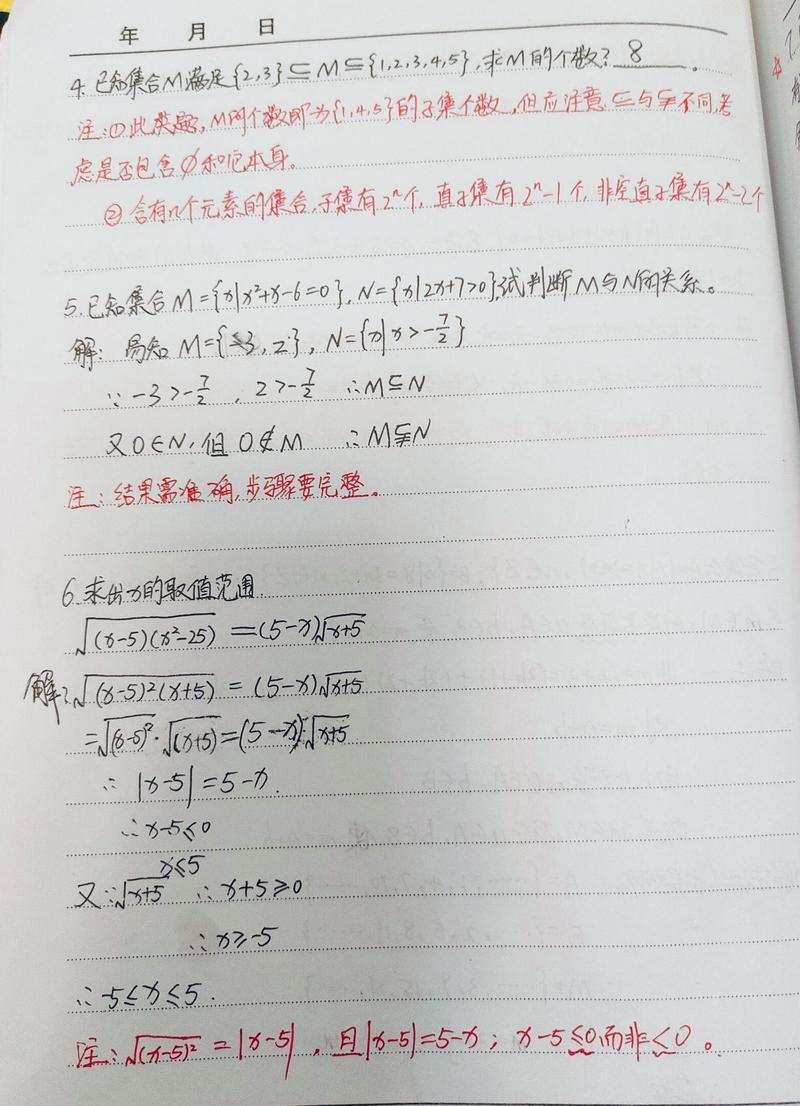 年 月 日
4. 已知集合M满足{2,3}⊆M⊆{1,2,3,4,5},求M的个数? 8 。
注:①此类题,M的个数即为{1,4,5}的子集个数,但应注意⊆与⫋不同,考
虑是否包含∅和它本身。
②含有n个元素的集合,子集有2ⁿ个,真子集有2ⁿ-1个,非空真子集有2ⁿ-2个
5. 已知集合M={x|x²+x-6=0},N={x|2x+7>0},试判断M与N的关系。
解:易知M={-3,2},N={x|x>-7/2}
∵-3>-7/2,2>-7/2 ∴M⊆N
又0∈N,但0∉M ∴M⫋N
注:结果需准确,步骤要完整。
6. 求出x的取值范围.
√((x-5)(x²-25)) =(5-x)√(x+5)
解:√((x-5)²(x+5)) = (5-x)√(x+5)
=√((x-5)²)·√((x+5))=(5-x)·√(x+5)
∴ |x-5|=5-x.
∴x-5≤0
x≤5
又∵√(x+5) ∴x+5≥0
∴x≥-5
∴-5≤x≤5.
注:√((x-5)²) =|x-5|,且|x-5|=5-x;x-5≤0而非<0。